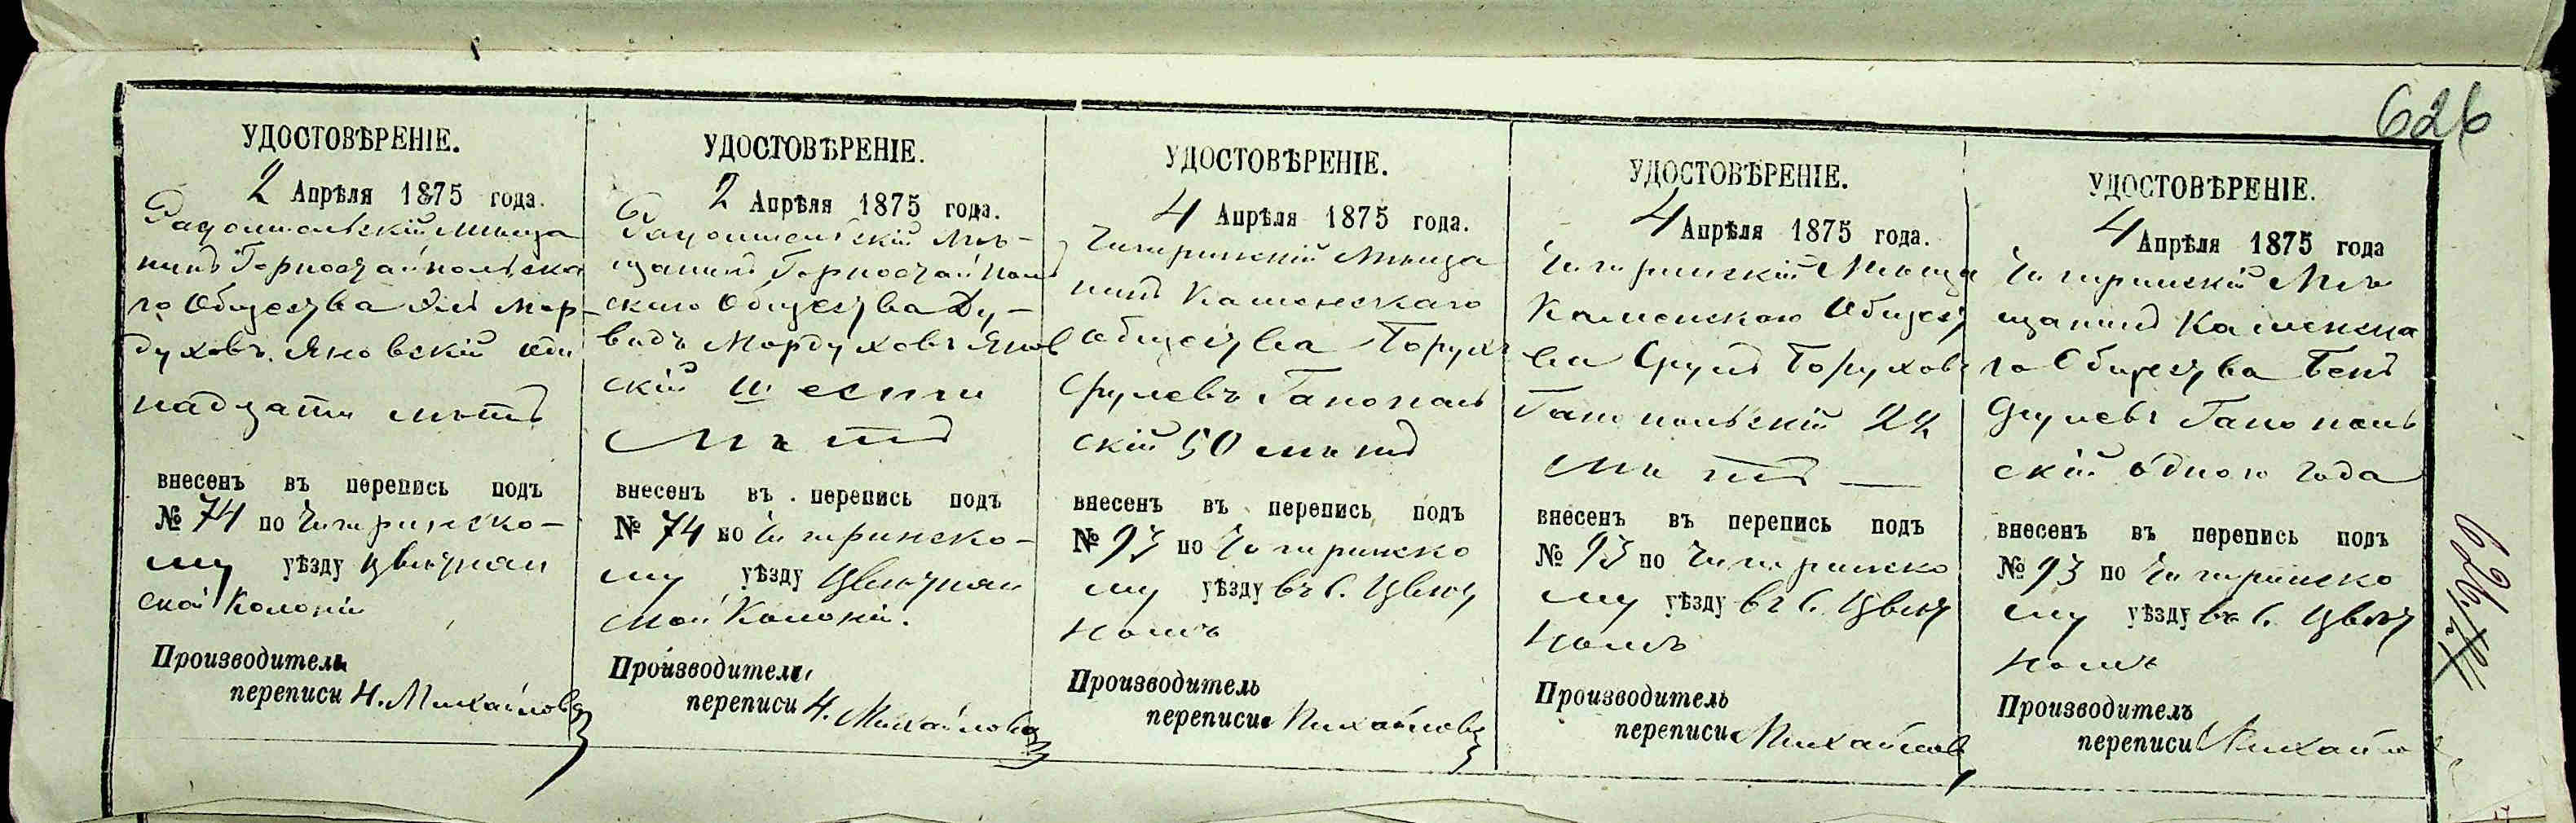 626
УДОСТОВѢРЕНІЕ.
2 Апрѣля 1875 года.
Радомысльскій мѣща
нинъ Горностайпольска
го Общества Эль Мор-
духовъ Яновскій оди
надцати лѣтъ
внесенъ въ перепись подъ
№ 74 по Чигиринско-
му уѣзду Цвѣтнян
ской Колоніи
Производитель
переписи Н. Михайловъ
УДОСТОВѢРЕНІЕ.
2 Апрѣля 1875 года.
Радомысльскій мѣ-
щанинъ Горностайполь
скаго Общества Ду-
видъ Мордуховъ Янов
скій шести
лѣтъ
внесенъ въ перепись подъ
№ 74 по Чигиринско-
му уѣзду Цвѣтнян
ской Колоніи.
Производитель
переписи Н. Михайловъ
УДОСТОВѢРЕНІЕ.
4 Апрѣля 1875 года.
Чигиринскій Мѣща
нинъ Каменскаго
Общества Борухъ
Срулевъ Ганополь
скій 50 лѣтъ
внесенъ въ перепись подъ
№ 93 по Чигиринско
му уѣзду въ с. Цвѣт
номъ
Производитель
переписи Михайловъ
УДОСТОВѢРЕНІЕ.
4 Апрѣля 1875 года.
Чигиринскій Мѣща
Каменскаго Общест
ва Сруль Борухов
Ганопольскій 24
лѣтъ
внесенъ въ перепись подъ
№ 93 по Чигиринско
му уѣзду въ с. Цвѣт
номъ
Производитель
переписи Михайловъ
УДОСТОВѢРЕНІЕ.
4 Апрѣля 1875 года
Чигиринскій Мѣ
щанинъ Каменска
го Общества Бенъ
Срулевъ Ганополь
скій одного года
внесенъ въ перепись подъ
№ 93 по Чигиринско
му уѣзду въ с. Цвѣт
номъ
Производитель
переписи Михайло